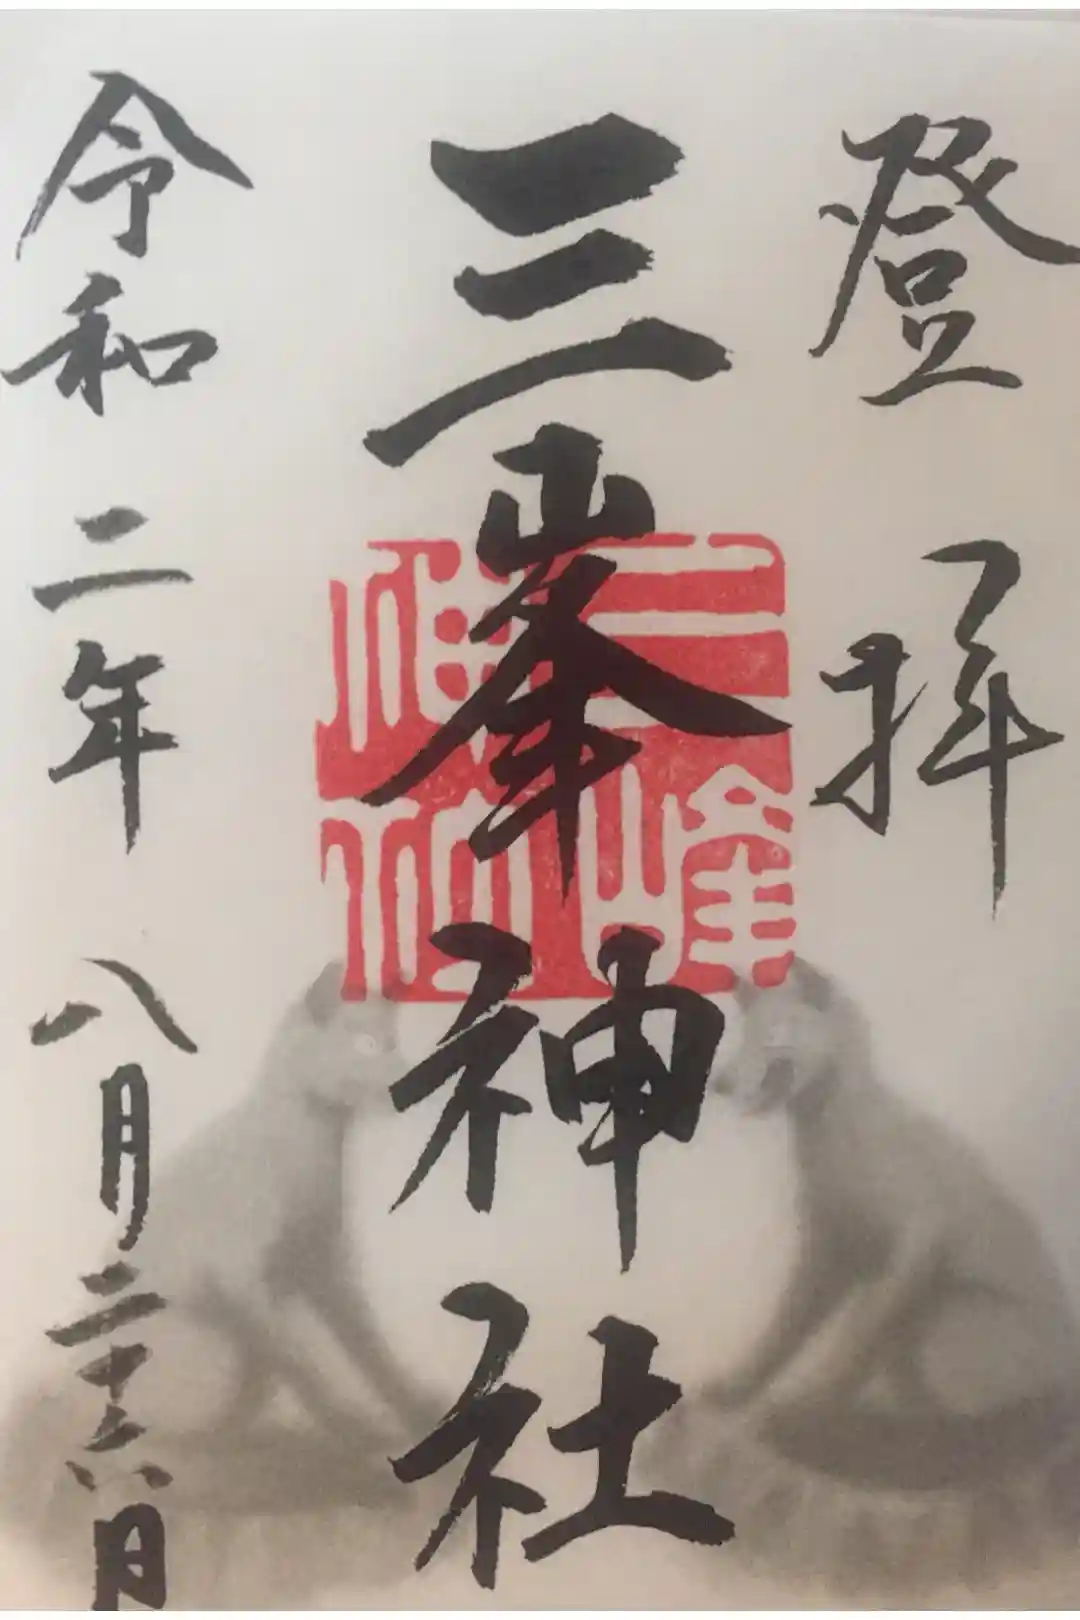 登拝
三峯神社
令和二年八月二十六日